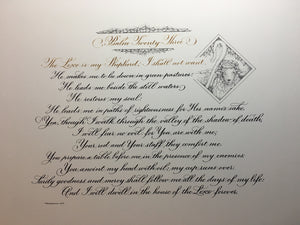 Psalm Twenty-Three
The LORD is my Shepherd, I shall not want.
He makes me to lie down in green pastures;
He leads me beside the still waters.
He restores my soul.
He leads me in paths of righteousness for His name's sake.
Yea, though I walk through the valley of the shadow of death,
I will fear no evil; For You are with me;
Your rod and Your staff, they comfort me.
You prepare a table before me in the presence of my enemies;
You anoint my head with oil; my cup runs over.
Surely goodness and mercy shall follow me all the days of my life;
And I will dwell in the house of the LORD forever.